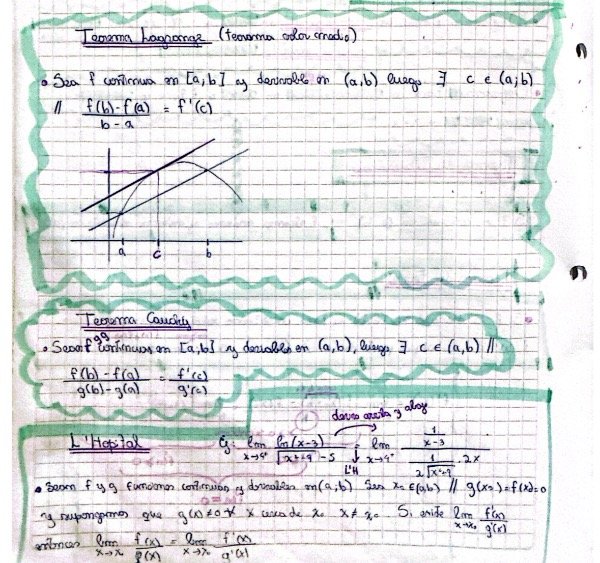 Teorema Lagrange (teorema valor medio)
• Sea f continua en [a,b] y derivable en (a,b) luego ∃ c ∈ (a;b)
// f(b)-f(a) / b-a = f'(c)
a c b
Teorema Cauchy
• Sean f y g continuas en [a,b] y derivables en (a,b), luego ∃ c ∈ (a,b) //
f(b)-f(a) / g(b)-g(a) = f'(c) / g'(c)
derivo arriba y abajo
L'Hopital Ej: lim x→4⁺ ln(x-3) / √x²+9 - 5 = L'H lim x→4⁺ 1/x-3 / 1/2√x²+9 . 2x
• Sean f y g funciones continuas y derivables en (a,b) Sea x₀ ∈ (a,b) // g(x₀)=f(x₀)=0
y supongamos que g'(x)≠0 ∀ x cerca de x₀ x≠x₀. Si existe lim x→x₀ f'(x)/g'(x)
entonces lim x→x₀ f(x)/g(x) = lim x→x₀ f'(x)/g'(x)